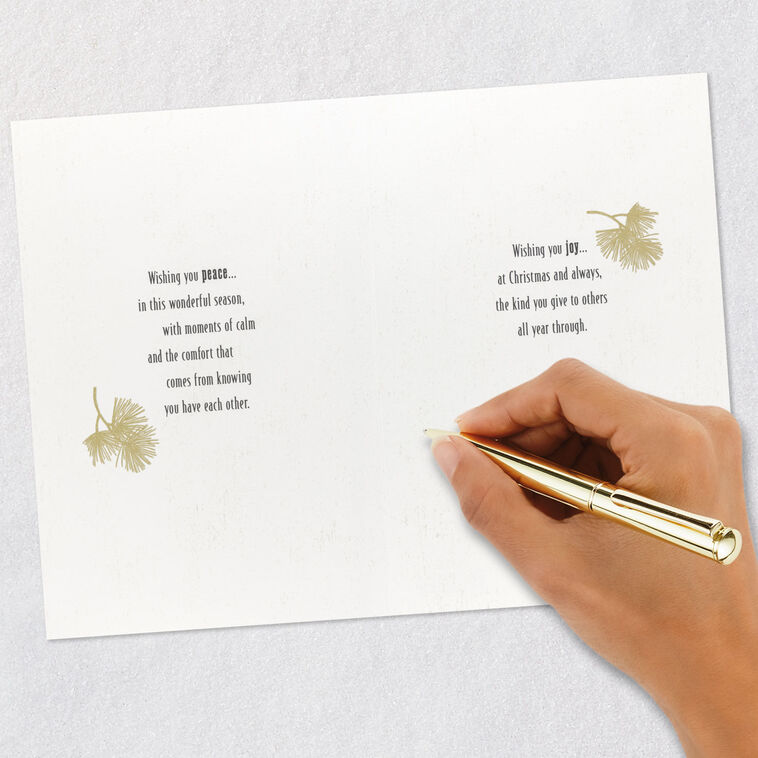 Wishing you peace...
in this wonderful season,
with moments of calm
and the comfort that
comes from knowing
you have each other.
Wishing you joy...
at Christmas and always,
the kind you give to others
all year through.